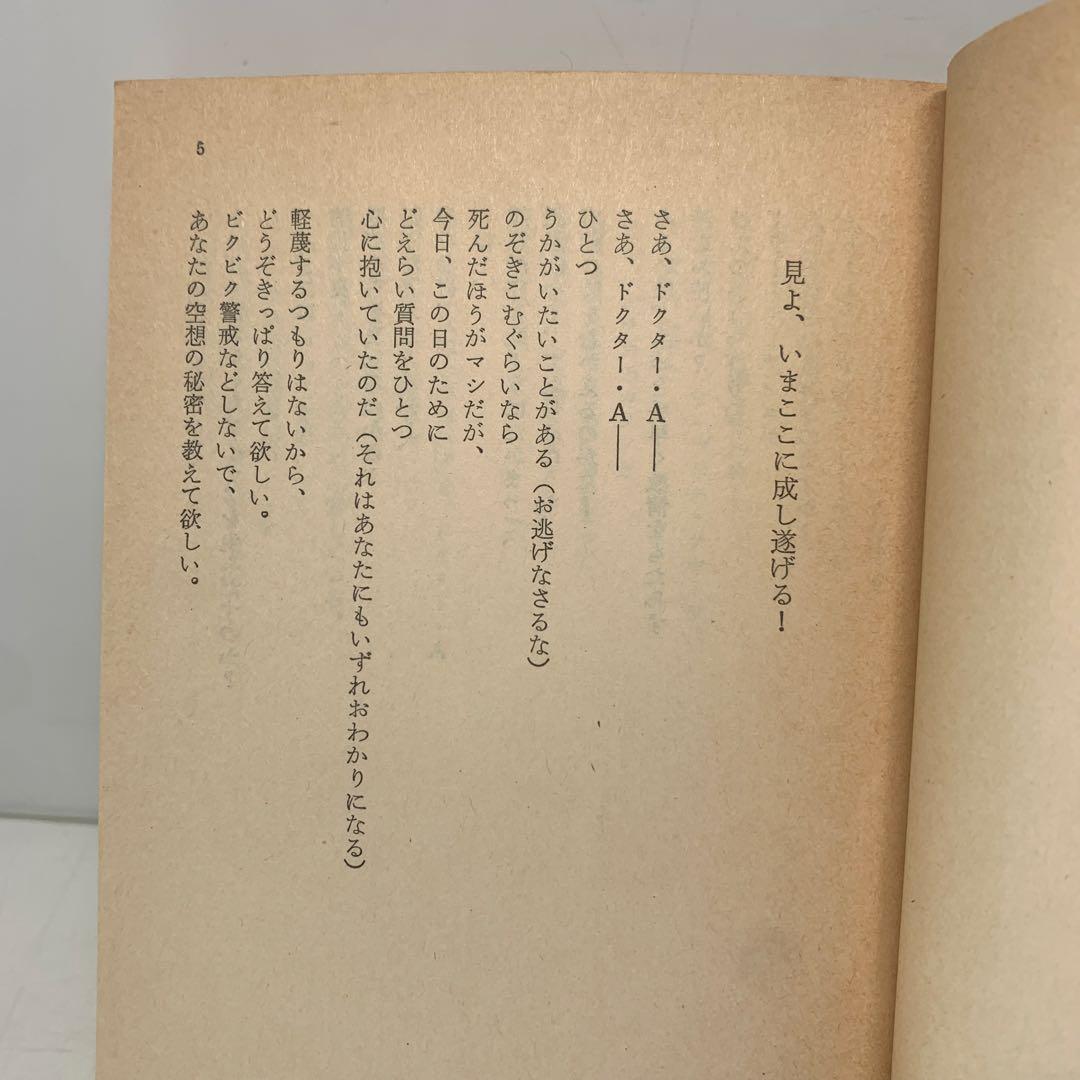 見よ、いまここに成し遂げる！
さあ、ドクター・A——
さあ、ドクター・A——
ひとつ
うかがいたいことがある（お逃げなさるな）
のぞきこむぐらいなら
死んだほうがマシだが、
今日、この日のために
どえらい質問をひとつ
心に抱いていたのだ（それはあなたにもいずれおわかりになる）
軽蔑するつもりはないから、
どうぞきっぱり答えて欲しい。
ビクビク警戒などしないで、
あなたの空想の秘密を教えて欲しい。
5